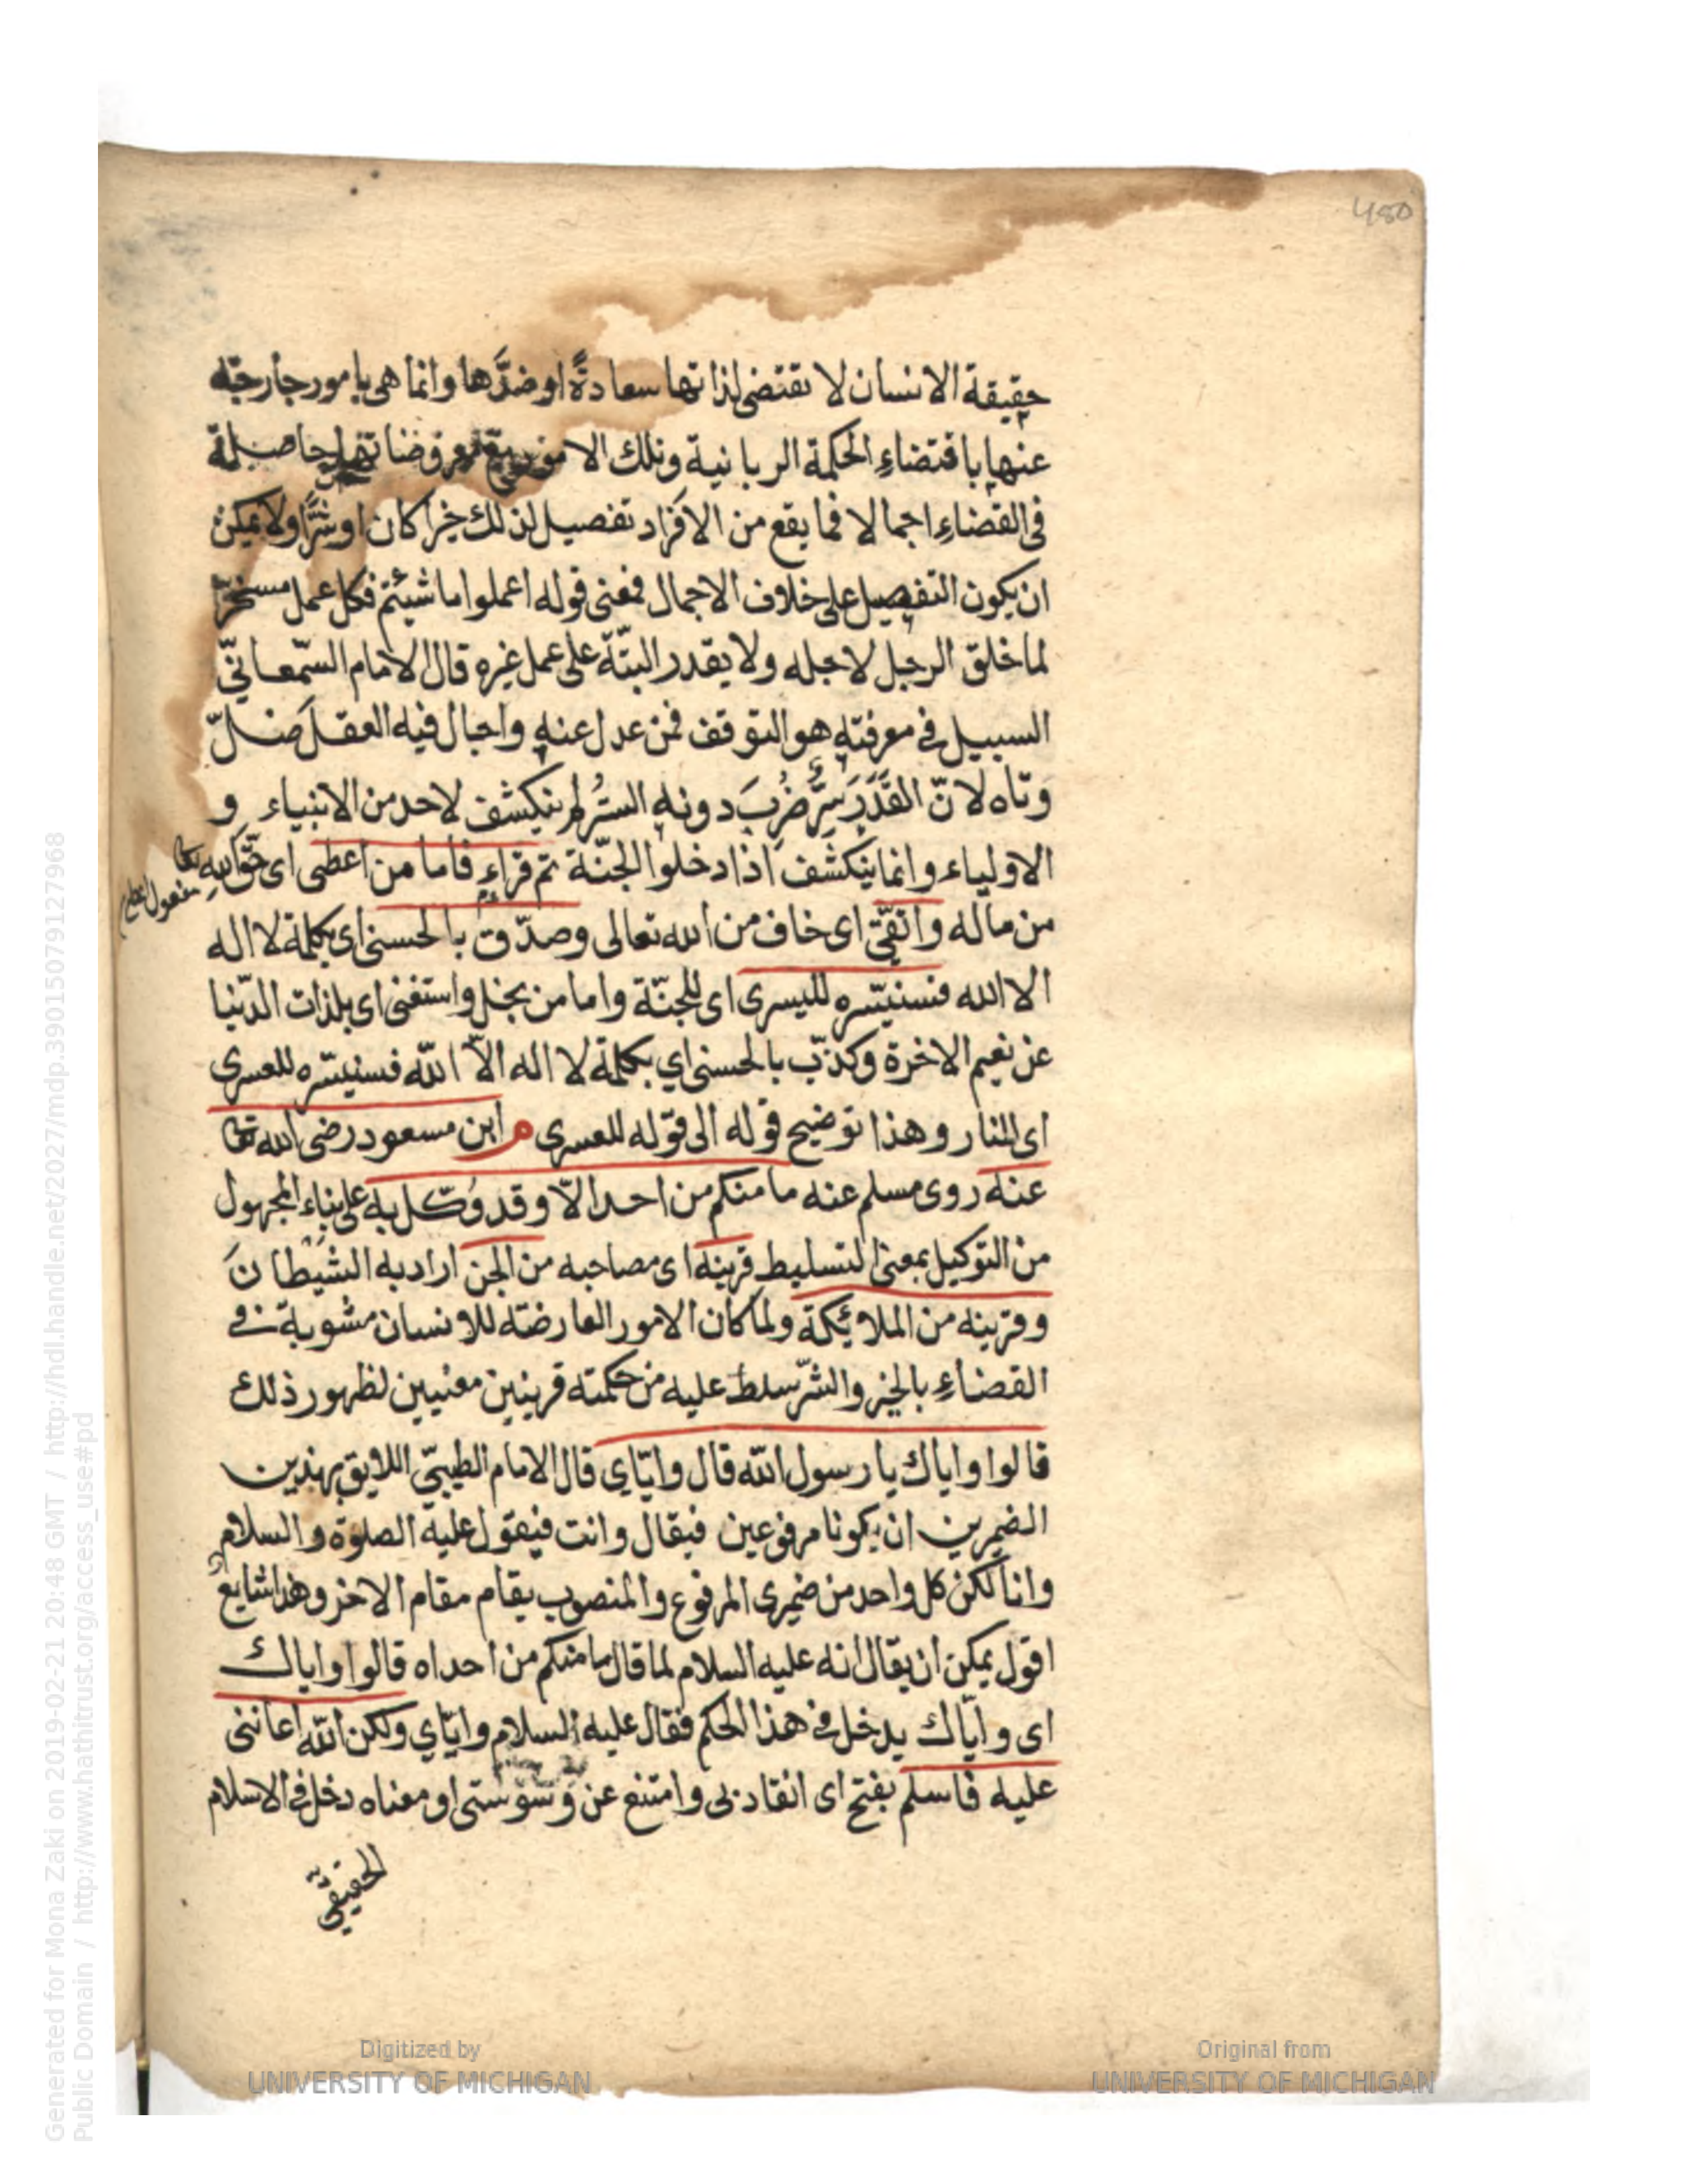 480
حقيقة الانسان لا تقتضى لذاتها سعادةً او ضدَّها وانما هى بامور خارجة
عنها باقتضاءِ الحكمة الربانية وتلك الامور مع معروضاتها حاصلة
فى القضاءِ اجمالا فما يقع من الافراد تفصيل لذلك خيرا كان او شرًّا ولا يمكن
ان يكون التفصيل على خلاف الاجمال فمعنى قوله اعملوا ما شيئتم فكل عمل مسخرّ
لما خلق الرجل لاجله ولا يقدر البتّة على عمل غيره قال الامام السّمعانىّ
السبيل فى معرفته هو التوقف فمن عدل عنه واجال فيه العقل ضلّ
وتاه لانّ القَدَرَ سِرٌّ ضُرِبَ دونه السترُ لم ينكشف لاحد من الانبياء و
الاولياء وانما ينكشف اذا دخلوا الجنّة ثم قراء فاما من اعطى اى حقّ الله تعا
مفعول اعطى
من ماله واتقى اى خاف من الله تعالى وصدّق بالحسنى اى بكلمة لا اله
الا الله فسنيسّره لليسرى اى للجنّة واما من بخل واستغنى اى بلذات الدّنيا
عن نعيم الاخرة وكذّب بالحسنى اي بكلمة لا اله الاّ الله فسنيسّره للعسرى
اى للنار وهذا توضيح قوله الى قوله للعسرى م ابن مسعود رضى الله تعا
عنه روى مسلم عنه ما منكم من احد الاّ وقد وُكّل به على بناء المجهول
من التوكيل بمعنى التسليط قرينه اى مصاحبه من الجن اراد به الشيطان
وقرينه من الملائكة ولما كان الامور العارضة للانسان مشوبة فى
القضاءِ بالخير والشرّ سلط عليه من حكمته قرينين معنيين لظهور ذلك
قالوا واياك يا رسول الله قال وايّاي قال الامام الطيبىّ اللايق بهذين
الضميرين ان يكونا مرفوعين فيقال وانت فيقول عليه الصلوة والسلام
وانا لكن كل واحد من ضميرى المرفوع والمنصوب يقام مقام الاخر وهذا شايعٌ
اقول يمكن ان يقال انه عليه السلام لما قال ما منكم من احداه قالوا واياك
اى واياك يدخل فى هذا الحكم فقال عليه السلام وايّاي ولكن الله اعاننى
عليه فاسلم بفتح اى انقاد بى وامتنع عن وسوستى او معناه دخل فى الاسلام
الحقيقىّ
Generated for Mona Zaki on 2019-02-21 20:48 GMT / http://hdl.handle.net/2027/mdp.39015079127968
Public Domain / http://www.hathitrust.org/access_use#pd
Digitized by
UNIVERSITY OF MICHIGAN
Original from
UNIVERSITY OF MICHIGAN